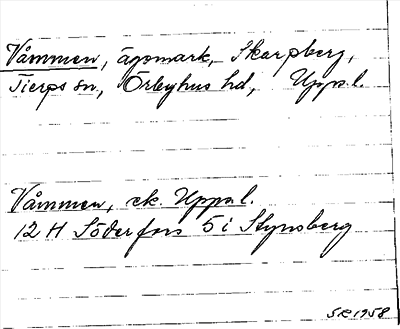 Våmmen, ägomark, Skarpberg,
Tierps sn, Örbyhus hd, Upps.l.
Våmmen, ek. Uppsal.
12 H Söderfors 5 i Stynsberg
SR 1958